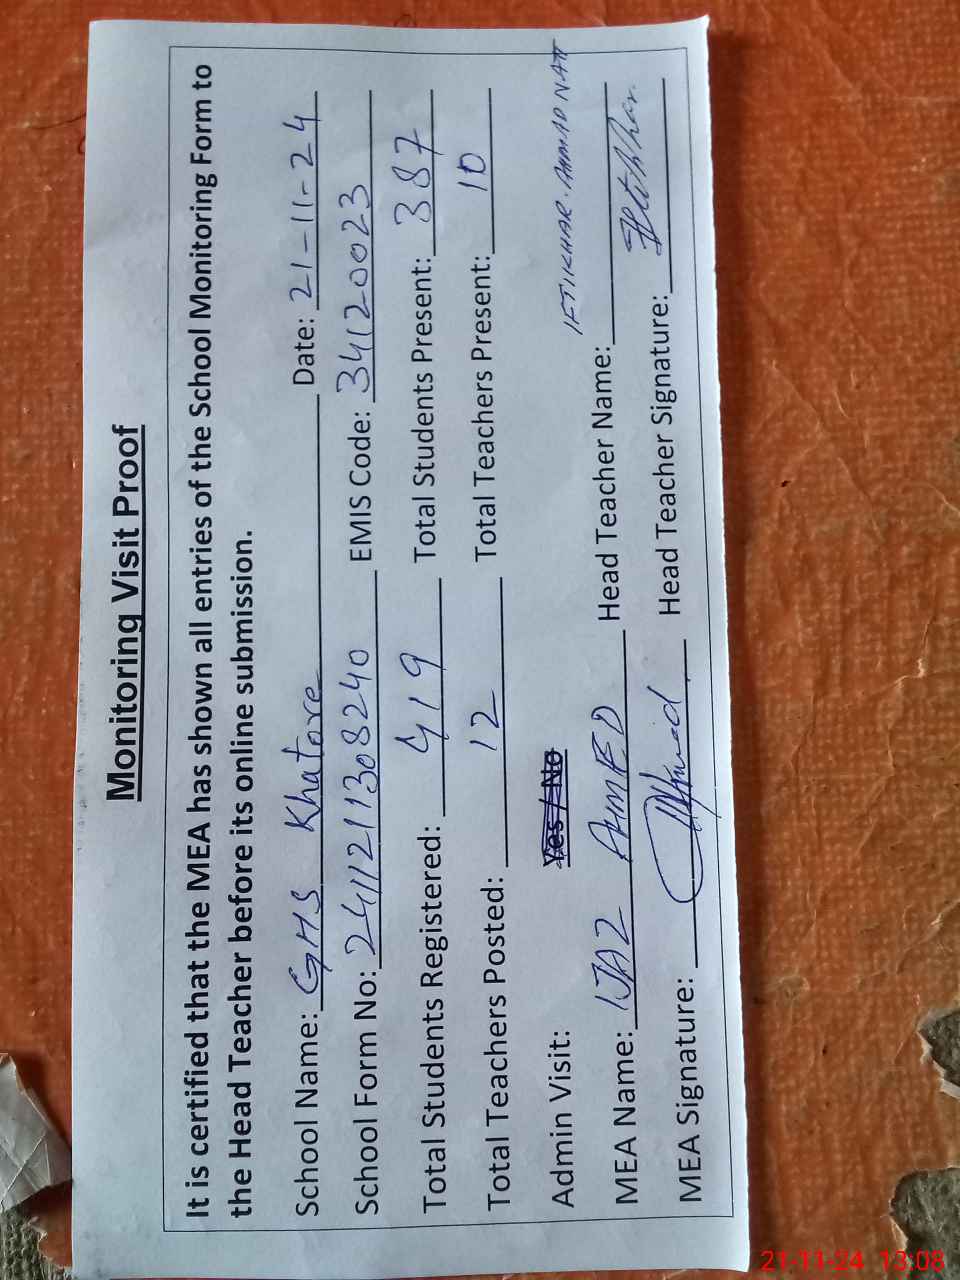 Monitoring Visit Proof
It is certified that the MEA has shown all entries of the School Monitoring Form to
the Head Teacher before its online submission.
School Name: GHS Khatore Date: 21-11-24
School Form No: 2411211308240 EMIS Code: 34120023
Total Students Registered: 419 Total Students Present: 387
Total Teachers Posted: 12 Total Teachers Present: 10
Admin Visit: Yes / No
IFTIKHAR. AHMAD
MEA Name: IJAZ AHMED Head Teacher Name:
MEA Signature: Head Teacher Signature:
21-11-24 13:08